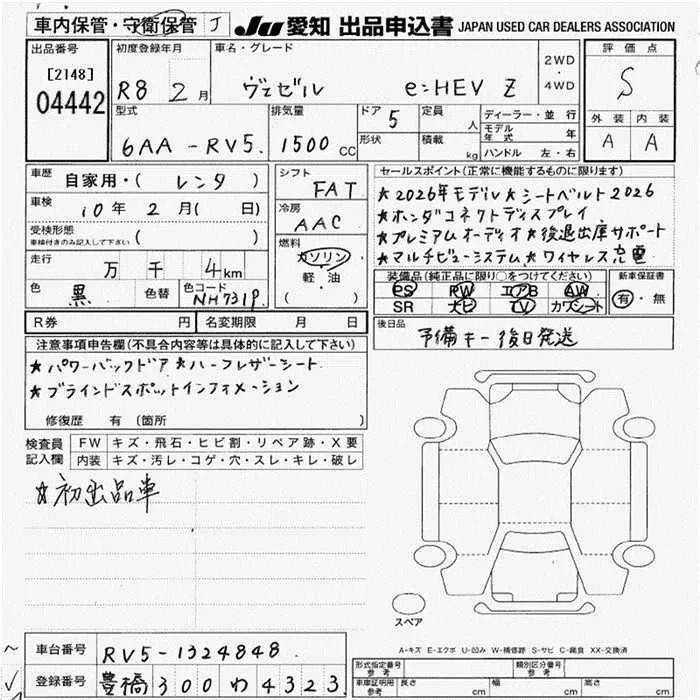 車内保管・守衛保管 J JU 愛知 出品申込書 JAPAN USED CAR DEALERS ASSOCIATION
出品番号 初度登録年月 車名・グレード 評価点
[2148] R8 2月 ヴェゼル e:HEV Z 2WD・4WD S
04442
型式 排気量 ドア 5 定員 人 ディーラー・並行 外装 内装
6AA-RV5. 1500 CC 形状 積載 kg モデル年式 年 A A
ハンドル 左・右
車歴 自家用・( レンタ ) シフト FAT セールスポイント(正常に機能するものに限ります)
車検 10年 2月( 日) 冷房 AAC ★2026年モデル★シートベルト2026
受検形態 ( ) ★ホンダコネクトディスプレイ
車検付きのみ記入して下さい 燃料 ★プレミアムオーディオ★後退出庫サポート
走行 万 千 4km ガソリン ★マルチビューシステム★ワイヤレス充電
軽・油
( )
色 黒 色替 色コード NH731P. 装備品(純正品に限り○をつけてください) 新車保証書
PS PW エアB AW 有・無
SR ナビ TV カワシート
R券 円 名変期限 月 日 後日品
予備キー後日発送
注意事項申告欄(不具合内容等は具体的に記入して下さい)
★パワーバックドア★ハーフレザーシート
★ブラインドスポットインフォメーション
修復歴 有 (箇所 )
検査員記入欄 FW キズ・飛石・ヒビ割・リペア跡・X要
内装 キズ・汚レ・コゲ・穴・スレ・キレ・破レ
☆初出品車
スペア
A-キズ E-エクボ U-凹み W-補修跡 S-サビ C-腐食 XX-交換済
車台番号 RV5-1324848 形式指定番号 参考 類別区分番号 参考
登録番号 豊橋 300 わ 4323 車庫証明用 参考 長さ cm 幅 cm 高さ cm